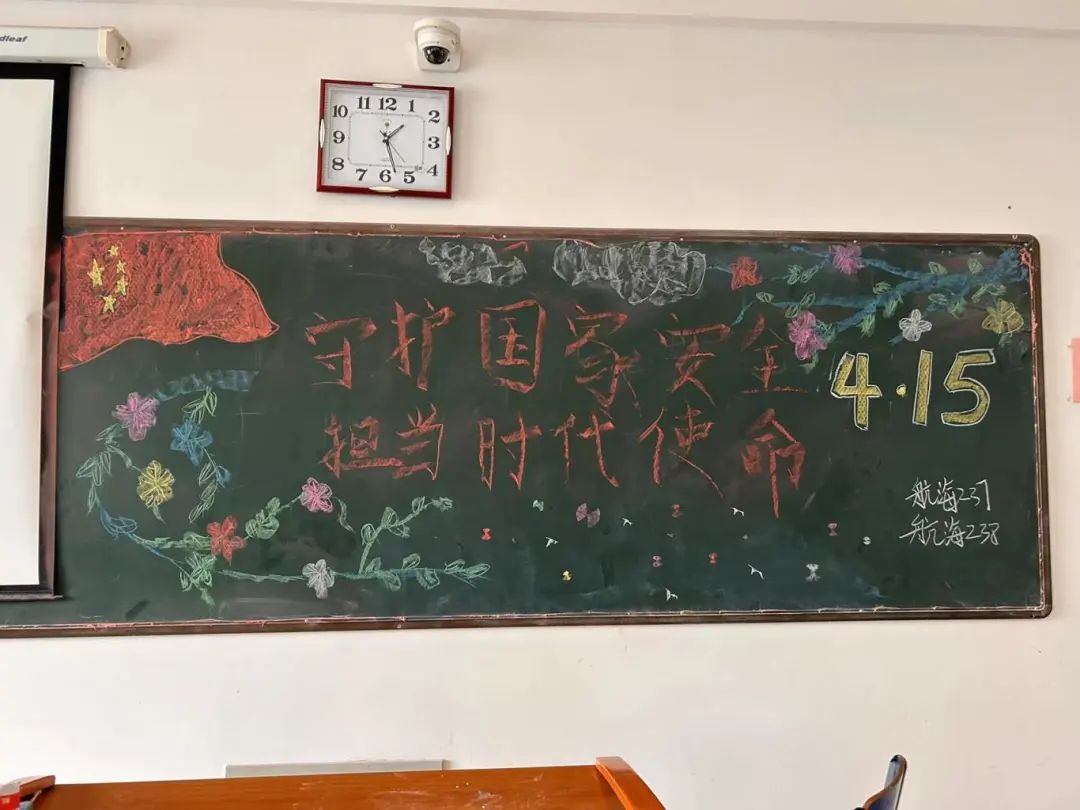 dleaf
11 12 1
10 2
9 3
8 4
7 6 5
守护国家安全
担当时代使命
4·15
航海237
航海238